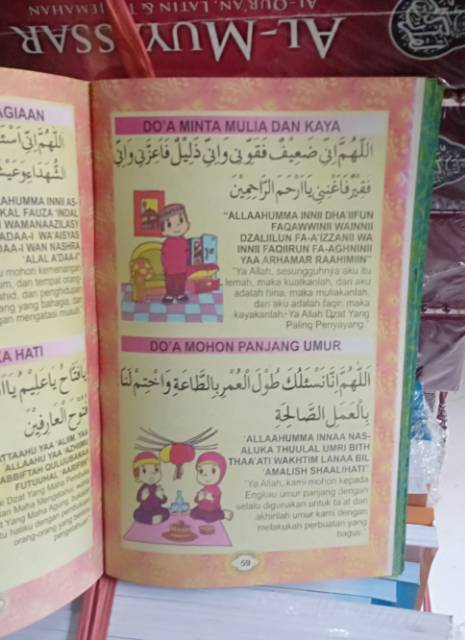 AL-QUR'AN, LATIN & TERJEMAHAN
AL-MUYASSAR
AGIAAN
AHUMMA INNII AS-
KAL FAUZA 'INDAL
WAMANAAZILASY
ADAA-I WA'AISYAS
DAA-I WAN NASHRA
'ALAL A'DAA-I"
u mohon kemenangan
um, dan tempat orang-
yang bahagia, dan
an mengatasi musuh."
KA HATI
يَافَتَّاحُ يَاعَلِيْمُ
فُتُوْحَ الْعَارِفِيْنَ
ATTAAHU YAA 'ALIIM, YAA
ALLAAHU YAA 'AZHIIMU
ABBIFTAH QULUUBANAA
FUTUUHAL 'AARIFIIN"
Dzat Yang Maha
an Maha Mengetahui, wahai
t Yang Maha Agung, bukakan
tu hatiku dengan pembukaan
orang-orang yang
pengetahuan."
DO'A MINTA MULIA DAN KAYA
اَللّٰهُمَّ اِنِّيْ ضَعِيْفٌ فَقَوِّنِيْ وَاِنِّيْ ذَلِيْلٌ فَاَعِزَّنِيْ وَاِنِّيْ
فَقِيْرٌ فَاَغْنِنِيْ يَااَرْحَمَ الرَّاحِمِيْنَ
"ALLAAHUMMA INNII DHA'IIFUN
FAQAWWINII WAINNII
DZALIILUN FA-A'IZZANII WA
INNII FAQIIRUN FA-AGHNINII
YAA ARHAMAR RAAHIMIIN"
"Ya Allah, sesungguhnya aku itu
lemah, maka kuatkanlah, dan aku
adalah hina, maka muliakanlah,
dan aku adalah faqir, maka
kayakanlah. Ya Allah Dzat Yang
Paling Penyayang."
DO'A MOHON PANJANG UMUR
اَللّٰهُمَّ اِنَّا نَسْئَلُكَ طُوْلَ الْعُمْرِ بِالطَّاعَةِ وَاخْتِمْ لَنَا
بِالْعَمَلِ الصَّالِحَةِ
"ALLAHUMMA INNAA NAS-
ALUKA THUULAL UMRI BITH
THAA'ATI WAKHTIM LANAA BIL
'AMALISH SHAALIHATI"
"Ya Allah, kami mohon kepada
Engkau umur panjang dengan
selalu digunakan untuk ta'at dan
akhirilah umur kami dengan
melakukan perbuatan yang
bagus."
59